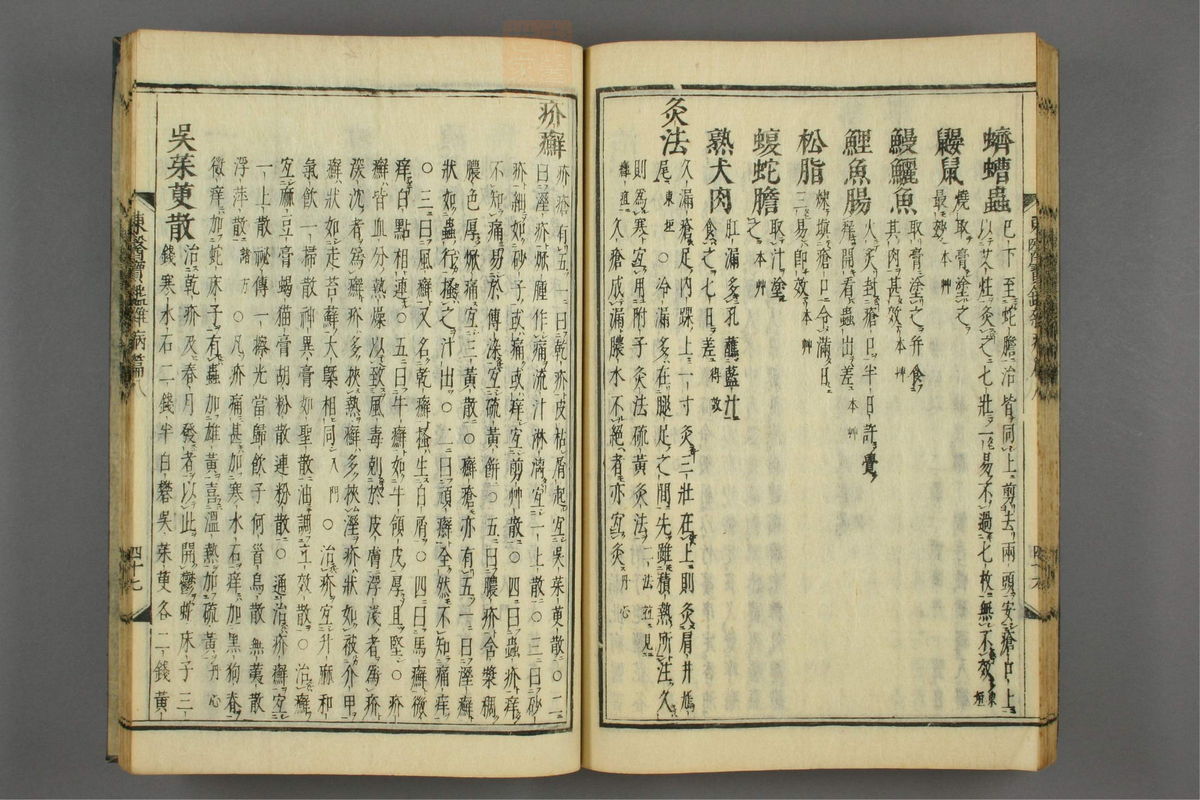 蠐螬蟲 已下至蛇膽治皆同上剪去兩頭安瘡口上
以艾炷灸之七壯一易不過七枚無不效 東垣
鼴鼠 燒取膏塗之
最妙 本艸
鰻鱺魚 取膏塗之幷食
其肉甚效 本艸
鯉魚腸 火炙封瘡口半日許覺
痒開看蟲出差 本艸
松脂 煉塡瘡口令滿日
三易卽效 本艸
蝮蛇膽 取汁塗
之 本艸
熟犬肉 肛漏多孔蘸藍汁
食之七日差 得效
灸法 久漏瘡足內踝上一寸灸三壯在上則灸肩井鳩
尾 東垣 ○冷漏多在腿足之間先雖積熱所注久
則爲寒宜用附子灸法硫黃灸法 二法並見
癰疽 久瘡成漏膿水不絕者亦宜灸 丹心
疥癬 疥瘡有五一曰乾疥皮枯屑起宜吳茱萸散○二
曰溼疥焮腫作痛流汁淋漓宜一上散○三曰砂
疥細如砂子或痛或痒宜剪艸散○四曰蟲疥痒
不知痛易於傳染宜硫黃餠○五曰膿疥含漿稠
膿色厚焮痛宜三黃散○癬瘡亦有五一曰溼癬
狀如蟲行搔之汁出○二曰頑癬全然不知痛痒
○三曰風癬又名乾癬搔生白屑○四曰馬癬微
痒白點相連○五曰牛癬如牛領皮厚且堅○疥
癬皆血分熱燥以致風毒剋於皮膚浮淺者爲疥
深沈者爲癬疥多挾熱癬多挾溼疥狀如被介甲
癬狀如走苔蘚大槩相同 入門 ○治疥宜升麻和
氣飮一掃散神異膏如聖散油調立效散○治癬
宜麻豆膏蝎猫膏胡粉散連粉散○通治疥癬宜
一上散祕傳一擦光當歸飮子何首烏散無荑散
浮萍散 諸方 ○凡疥痛甚加寒水石痒加黑狗脊
微痒加蛇床子有蟲加雄黃喜溫熱加硫黃 丹心
吳茱萸散 治乾疥及春月發者以此開鬱蛇床子三
錢寒水石二錢半白礬吳茱萸各二錢黃
東醫寶鑑雜病篇八
四十七